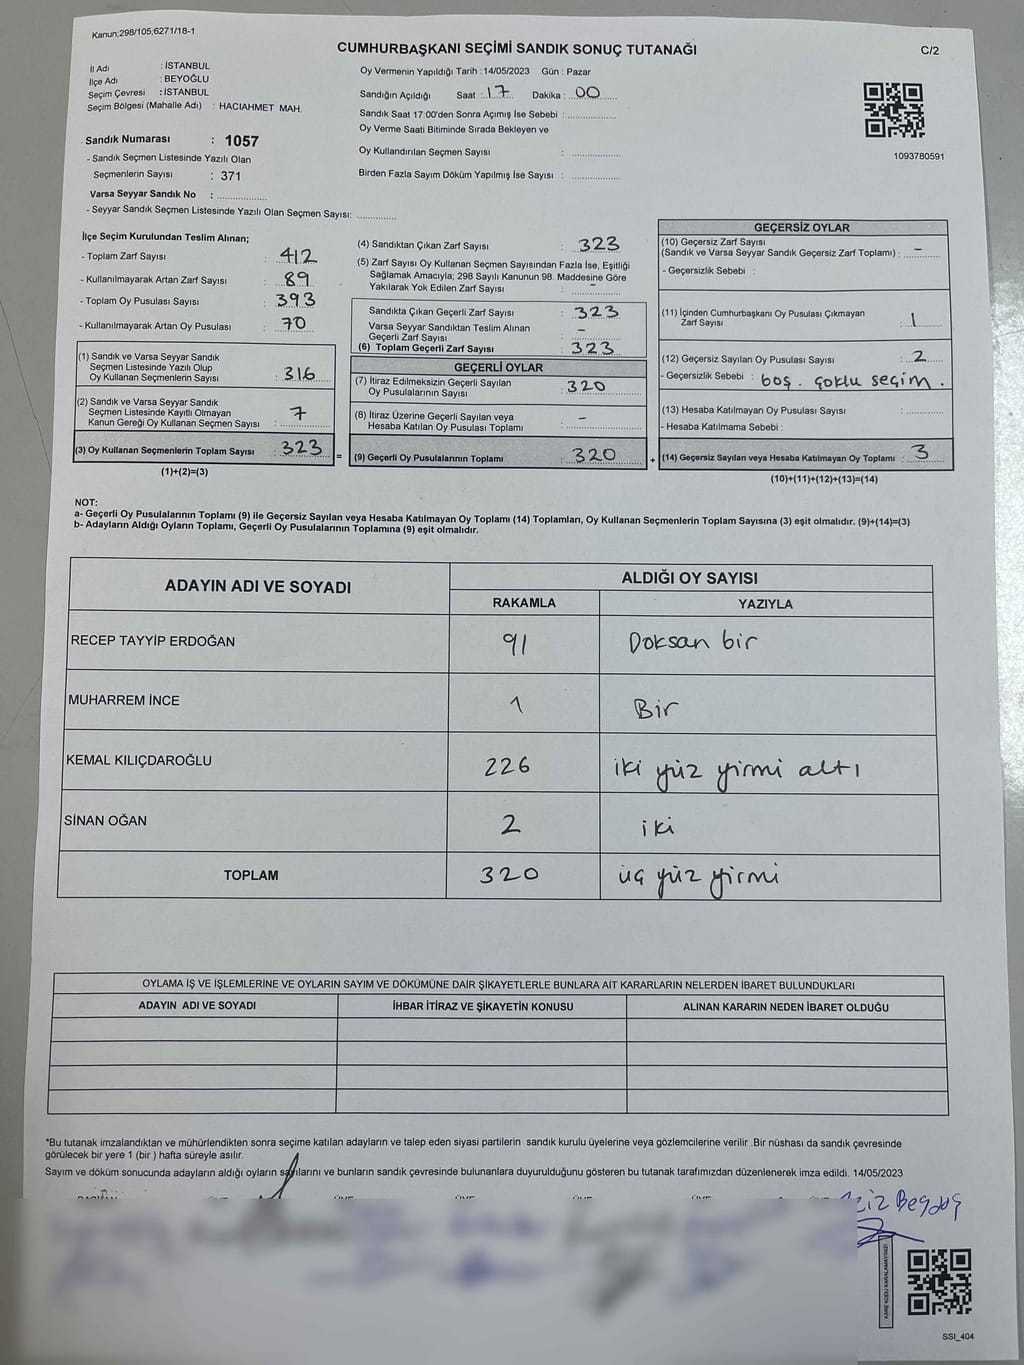 Kanun;298/105;6271/18-1
CUMHURBAŞKANI SEÇİMİ SANDIK SONUÇ TUTANAĞI
C/2
İl Adı : İSTANBUL
İlçe Adı : BEYOĞLU
Seçim Çevresi : İSTANBUL
Seçim Bölgesi (Mahalle Adı) : HACIAHMET MAH.
Sandık Numarası : 1057
- Sandık Seçmen Listesinde Yazılı Olan
Seçmenlerin Sayısı : 371
Varsa Seyyar Sandık No :
- Seyyar Sandık Seçmen Listesinde Yazılı Olan Seçmen Sayısı:
Oy Vermenin Yapıldığı Tarih :14/05/2023 Gün : Pazar
Sandığın Açıldığı Saat : 17 Dakika : 00
Sandık Saat 17:00'den Sonra Açımış İse Sebebi :
Oy Verme Saati Bitiminde Sırada Bekleyen ve
Oy Kullandırılan Seçmen Sayısı :
Birden Fazla Sayım Döküm Yapılmış İse Sayısı :
1093780591
İlçe Seçim Kurulundan Teslim Alınan;
- Toplam Zarf Sayısı : 412
- Kullanılmayarak Artan Zarf Sayısı : 89
- Toplam Oy Pusulası Sayısı : 393
- Kullanılmayarak Artan Oy Pusulası : 70
(1) Sandık ve Varsa Seyyar Sandık
Seçmen Listesinde Yazılı Olup
Oy Kullanan Seçmenlerin Sayısı : 316
(2) Sandık ve Varsa Seyyar Sandık
Seçmen Listesinde Kayıtlı Olmayan
Kanun Gereği Oy Kullanan Seçmen Sayısı : 7
(3) Oy Kullanan Seçmenlerin Toplam Sayısı : 323
(1)+(2)=(3)
=
(4) Sandıktan Çıkan Zarf Sayısı : 323
(5) Zarf Sayısı Oy Kullanan Seçmen Sayısından Fazla İse, Eşitliği
Sağlamak Amacıyla; 298 Sayılı Kanunun 98. Maddesine Göre
Yakılarak Yok Edilen Zarf Sayısı : -
Sandıkta Çıkan Geçerli Zarf Sayısı : 323
Varsa Seyyar Sandıktan Teslim Alınan
Geçerli Zarf Sayısı : -
(6) Toplam Geçerli Zarf Sayısı : 323
GEÇERLİ OYLAR
(7) İtiraz Edilmeksizin Geçerli Sayılan
Oy Pusulalarının Sayısı : 320
(8) İtiraz Üzerine Geçerli Sayılan veya
Hesaba Katılan Oy Pusulası Toplamı : -
(9) Geçerli Oy Pusulalarının Toplamı : 320
+
GEÇERSİZ OYLAR
(10) Geçersiz Zarf Sayısı
(Sandık ve Varsa Seyyar Sandık Geçersiz Zarf Toplamı) : -
- Geçersizlik Sebebi :
(11) İçinden Cumhurbaşkanı Oy Pusulası Çıkmayan
Zarf Sayısı : 1
(12) Geçersiz Sayılan Oy Pusulası Sayısı : 2
- Geçersizlik Sebebi : boş. çoklu seçim.
(13) Hesaba Katılmayan Oy Pusulası Sayısı :
- Hesaba Katılmama Sebebi :
(14) Geçersiz Sayılan veya Hesaba Katılmayan Oy Toplamı : 3
(10)+(11)+(12)+(13)=(14)
NOT:
a- Geçerli Oy Pusulalarının Toplamı (9) ile Geçersiz Sayılan veya Hesaba Katılmayan Oy Toplamı (14) Toplamları, Oy Kullanan Seçmenlerin Toplam Sayısına (3) eşit olmalıdır. (9)+(14)=(3)
b- Adayların Aldığı Oyların Toplamı, Geçerli Oy Pusulalarının Toplamına (9) eşit olmalıdır.
ADAYIN ADI VE SOYADI
ALDIĞI OY SAYISI
RAKAMLA YAZIYLA
RECEP TAYYİP ERDOĞAN 91 Doksan bir
MUHARREM İNCE 1 Bir
KEMAL KILIÇDAROĞLU 226 iki yüz yirmi altı
SİNAN OĞAN 2 iki
TOPLAM 320 üç yüz yirmi
OYLAMA İŞ VE İŞLEMLERİNE VE OYLARIN SAYIM VE DÖKÜMÜNE DAİR ŞİKAYETLERLE BUNLARA AİT KARARLARIN NELERDEN İBARET BULUNDUKLARI
ADAYIN ADI VE SOYADI İHBAR İTİRAZ VE ŞİKAYETİN KONUSU ALINAN KARARIN NEDEN İBARET OLDUĞU
*Bu tutanak imzalandıktan ve mühürlendikten sonra seçime katılan adayların ve talep eden siyasi partilerin sandık kurulu üyelerine veya gözlemcilerine verilir .Bir nüshası da sandık çevresinde
görülecek bir yere 1 (bir ) hafta süreyle asılır.
Sayım ve döküm sonucunda adayların aldığı oyların sayılarını ve bunların sandık çevresinde bulunanlara duyurulduğunu gösteren bu tutanak tarafımızdan düzenlenerek imza edildi. 14/05/2023
KARE KODU KARALAMAYINIZ!
SSI_404